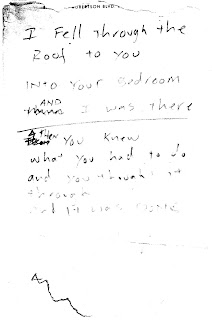 ROBERTSON BLVD
I Fell through the
Roof to you
INTO Your Bedroom
AND I was there
THEN You Knew
what you had to do
and you thought it
through
and it was